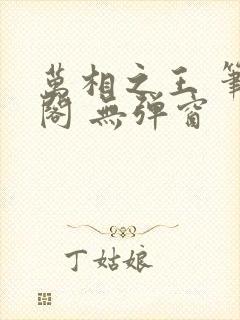 萬相之王 筆
閣 無彈窗
丁姑娘